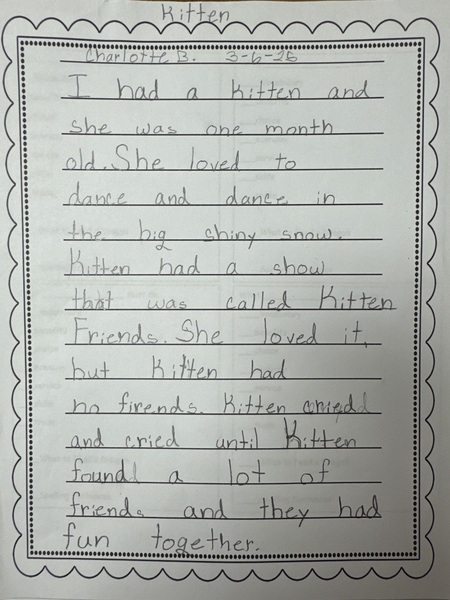 Kitten
Charlotte B. 3-6-26
I had a kitten and
she was one month
old. She loved to
dance and dance in
the big shiny snow.
Kitten had a show
that was called Kitten
Friends. She loved it,
but Kitten had
no firends. Kitten cried
and cried until Kitten
found a lot of
friends and they had
fun together.